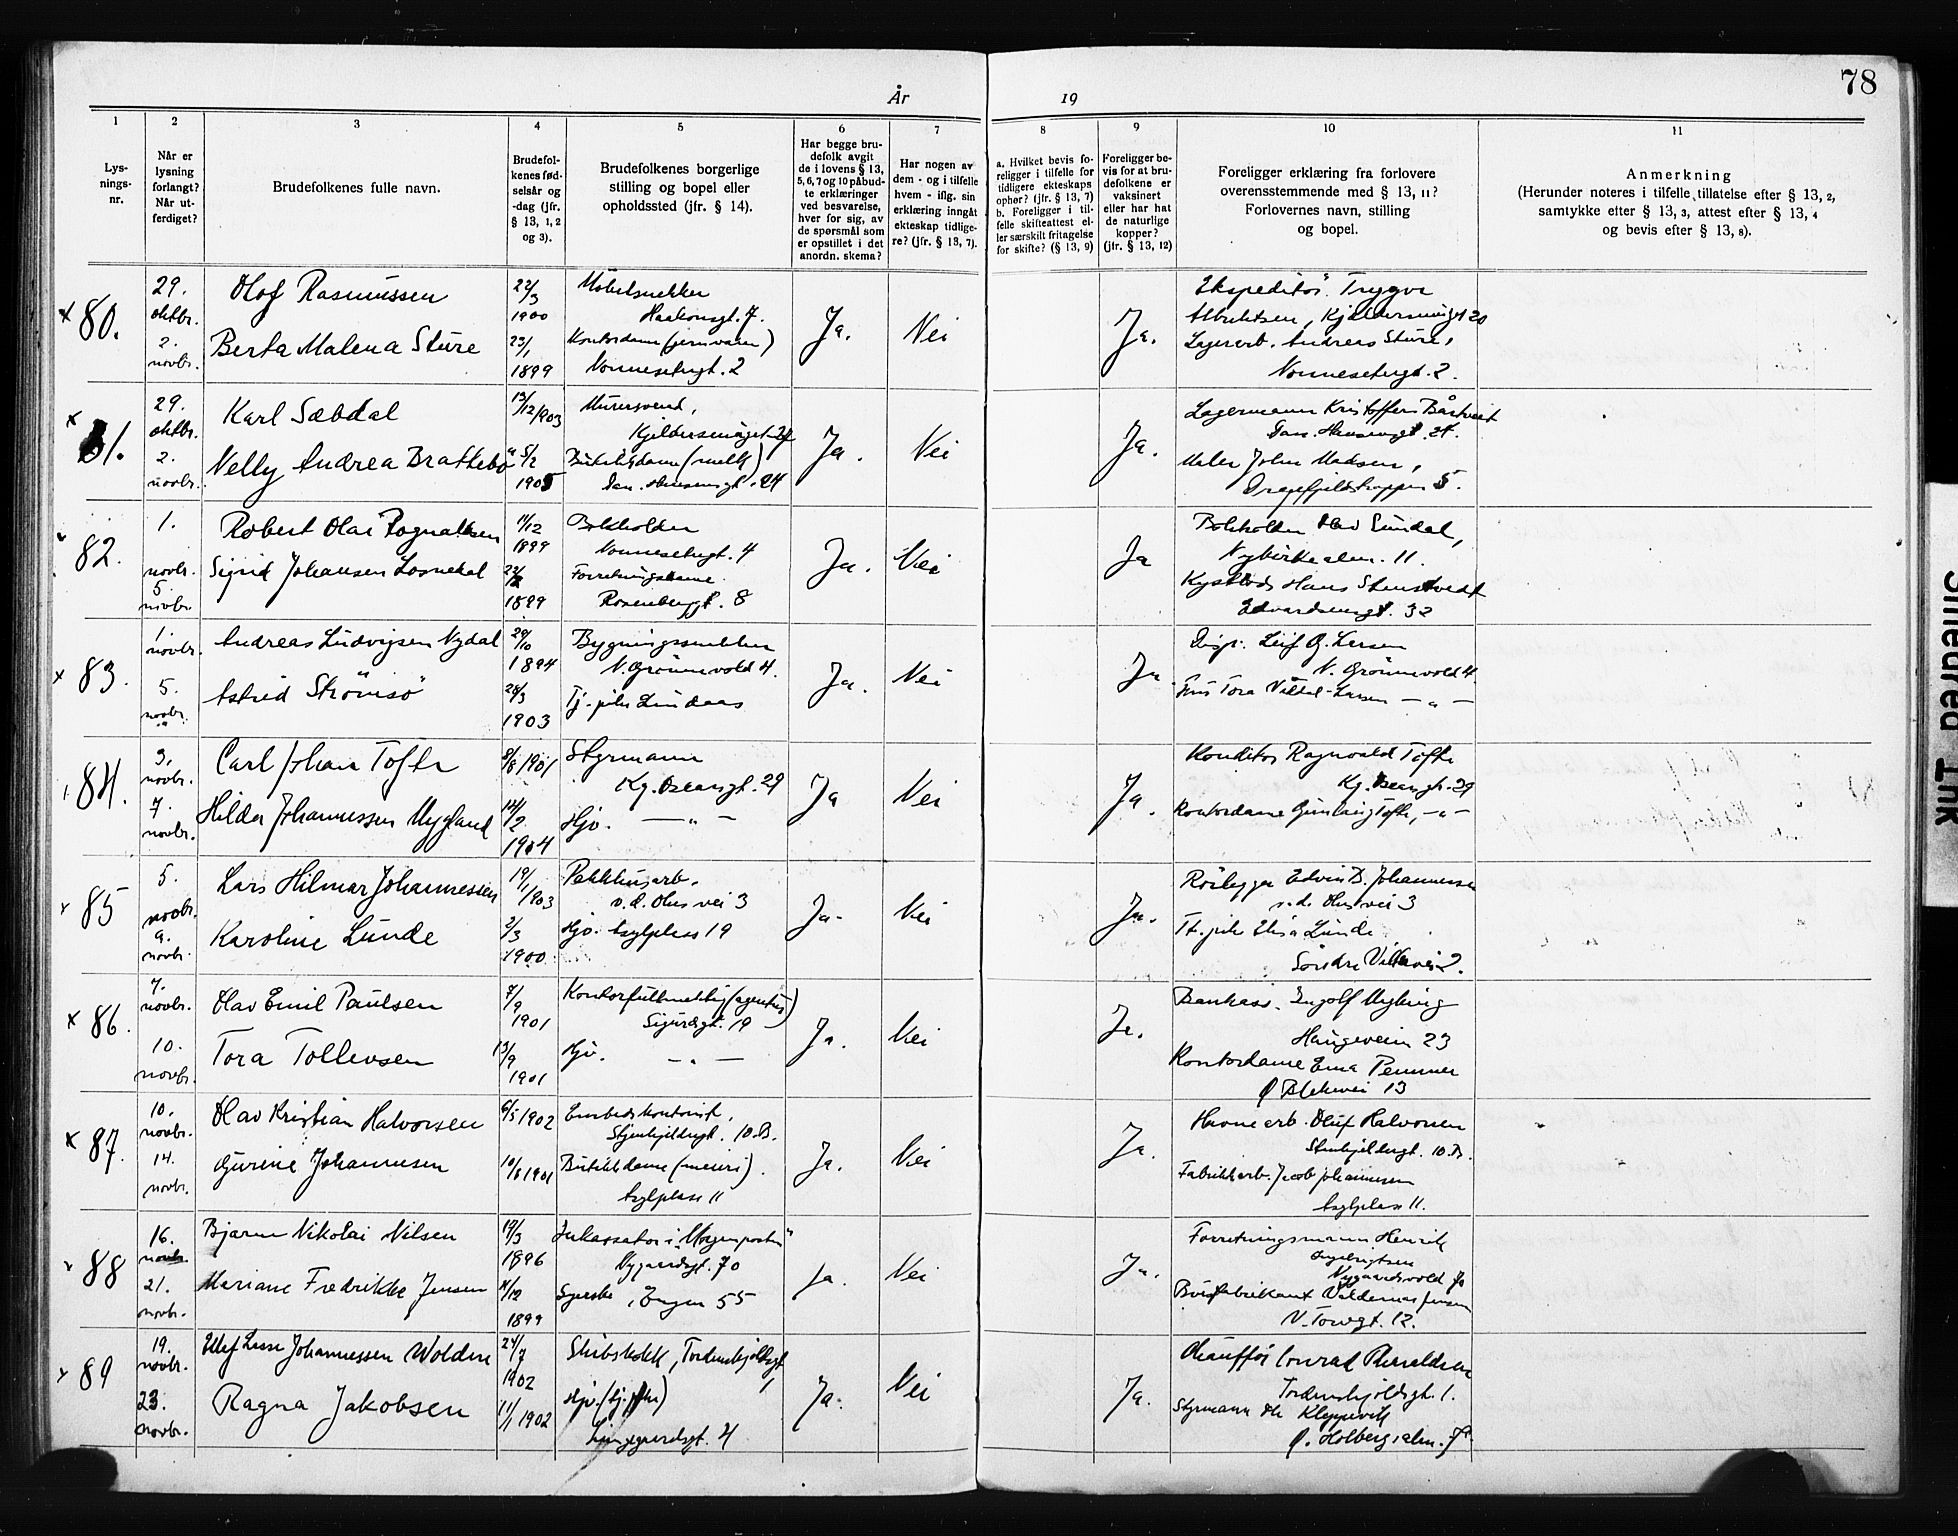 78
År 19
1 2 3 4 5 6 7 8 9 10 11
Lys-
nings-
nr.
Når er
lysning
forlangt?
Når ut-
ferdiget?
Brudefolkenes fulle navn.
Brudefol-
kenes fød-
selsår og
-dag (jfr.
§ 13, 1, 2
og 3).
Brudefolkenes borgerlige
stilling og bopel eller
opholdssted (jfr. § 14).
Har begge bru-
defolk avgit
de i lovens § 13,
5, 6, 7 og 10 påbud-
te erklæringer
ved besvarelse,
hver for sig, av
de spørsmål som
er opstillet i det
anordn. skema?
Har nogen av
dem - og i tilfelle
hvem - iflg. sin
erklæring inngåt
ekteskap tidlige-
re? (jfr. § 13, 7).
a. Hvilket bevis fo-
religger i tilfelle for
tidligere ekteskaps
ophør? (jfr. § 13, 7)
b. Foreligger i til-
felle skifteattest el-
ler særskilt fritagelse
for skifte? (§ 13, 9)
Foreligger be-
vis for at bru-
defolkene er
vaksinert
eller har hat
de naturlige
kopper?
(jfr. § 13, 12)
Foreligger erklæring fra forlovere
overensstemmende med § 13, 11?
Forlovernes navn, stilling
og bopel.
Anmerkning
(Herunder noteres i tilfelle tillatelse efter § 13, 2,
samtykke efter § 13, 3, attest efter § 13, 4
og bevis efter § 13, 8).
x 80.
29.
oktbr.
2.
novbr.
Olof Rasmussen
Berta Malena Sture
22/3
1900
23/1
1899
Møbelsnekker
Haakonsgt. 7.
Kontordame (jernvarer)
Nonnesetergt. 2
Ja.
Nei
Ja.
Ekspeditør Trygve
Albriktsen, Kjeldersmuget 20
Lagerarb. Andreas Sture,
Nonnesetergt. 2.
x 81.
29.
oktbr.
2.
novbr.
Karl Sæbdal
Nelly Andrea Brattebø
13/12 1903
5/2
1905
Murersvend,
Kjeldersmuget
Butikkdame (melk)
Dan. Hansensgt. 24
Ja.
Nei
Ja.
Lagermann Kristoffer Båstveit
Dan. Hansensgt. 24.
Maler John Madsen,
Dragefjeldstrappen 5.
82.
1.
novbr.
5.
novbr.
Robert Olai Rognaldsen
Sigrid Johansen Losnedal
11/12
1899
1899
Bokholder
Nonnesetergt. 4
Forretningsdame
Rosenbergt. 8
Ja.
Nei
Ja
Bokholder Olav Sundal,
Nybirkealm. 11.
Hans Stenstvedt
Edvardsensgt. 32
x 83.
1.
novbr.
5.
novbr.
Andreas Ludvigsen Nydal
Astrid Strømsø
29/10
1894
28/3
1903
Bygningssnekker
N. Grønnevold 4.
Tj. pike Lindaas
Ja.
Nei
Ja.
Disp. Leif G. Larsen
N. Grønnevold 4
Fru Tora Larsen — „ —
84.
3.
novbr.
7.
novbr.
Carl Johan Tofte
Hilda Johannessen Mygland
8/8 1901
12/2
1904
Styrmann
Kg. Oscarsgt. 29
Hjv. — „ —
Ja
Nei
Ja.
Konditor Ragnvald Tofte
Kg. Oscarsgt. 29
Kontordame Gunlaug Tofte, — „ —
85
5.
novbr.
9.
novbr.
Lars Hilmar Johannessen
Karoline Lunde
19/1 1903
2/3
1900
Pakkhusarb.
v. d. Ohes vei 3
Hjv. Asylplass 19
Ja.
Nei
Ja.
Rørlegger Edvin B. Johannessen
v. d. Ohes vei 3
Tj. pike Elisa Lunde
Søndre Villavei 2.
x 86.
7.
novbr.
10.
novbr.
Olav Emil Paulsen
Tora Tollevsen
7/9
1901
13/9
1901
Kontorfullmektig (agentur)
Sigurdsgt. 19
Hjv. — „ —
Ja.
Nei
Ja.
Bankass. Ingolf Myking
Haugeveien 23
Kontordame Ema
Ø Blekevei 13
x 87.
10.
novbr.
14.
novbr.
Olav Kristian Halvorsen
Gurine Johannesen
6/5 1902
10/8 1901
Embedskontorist,
Stenkjeldergt. 10. B.
Butikkdame (meieri).
Asylplass 11
Ja.
Nei
Ja.
Havnearb. Oluf Halvorsen
Stenkjeldergt. 10. B.
Fabrikkarb. Jacob Johannesen
Asylplass 11.
88
16.
novbr.
21.
novbr.
Bjarne Nikolai Nilsen
Mariane Fredrikke Jensen
19/3
1896
11/12
1899
Inkassator i „Morgenposten"
Nygaardsgt. 70
Syerske, Engen 55
Ja.
Nei
Ja.
Forretningsmann Henrik
Ingebrigtsen
Nygaardsvold
Valdemar Jensen
V. Torvgt. 12.
89
19.
novbr.
23.
novbr.
Johannessen Wolden
Ragna Jakobsen
24/7
1902
11/1 1902
Skibskokk, Tordenskjoldsgt.
1
Hjv. (tj. pike)
Lungegaardsgt. 4
Ja.
Nei
Ja.
Chauffør Conrad
Tordenskjoldsgt. 1.
Styrmann Ole Kleppevik
Ø. Holbergsalm. 7
Smedred Ink